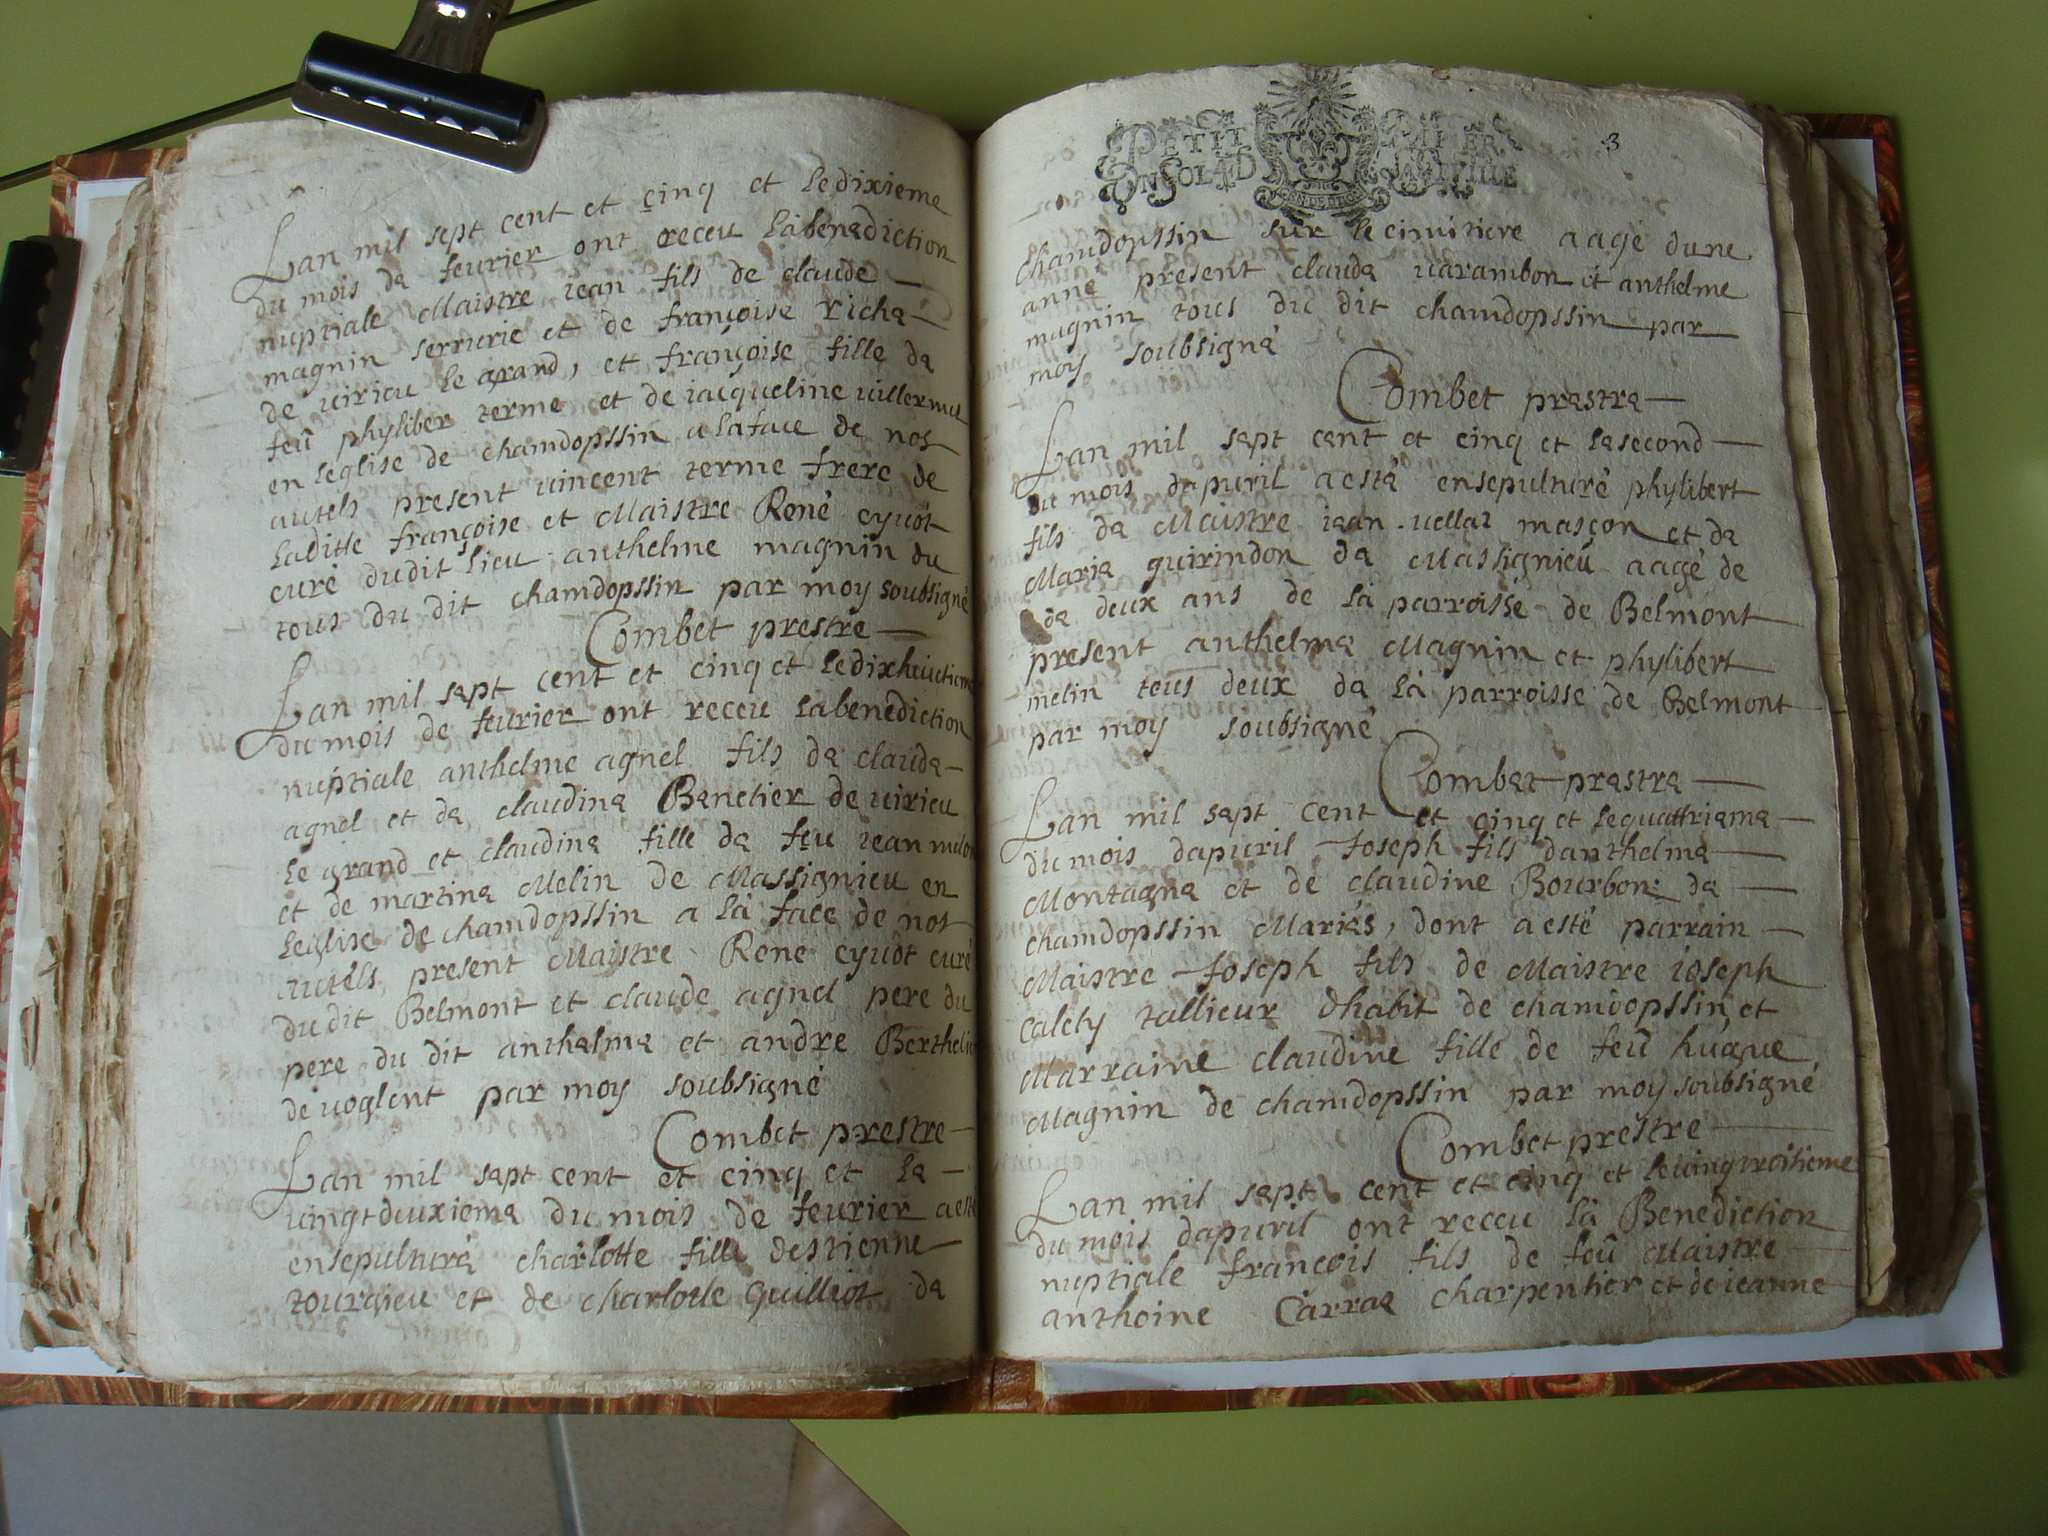 Lan mil sept cent et cinq et ledixieme
du mois de feurier ont receu labenediction
nuptiale Maistre iean fils de claude
magnin serrurie et de françoise richa
de uirieu le grand, et françoise fille da
feû phyliber terme et de iacqueline uillermu
en leglise de chamdopssin a laface de nos
autels present uincent terme frere de
laditte françoise et Maistre René eyuot
curé dudit lieu anthelme magnin du
tous du dit chamdopssin par moy soubsigné
Combet prestre
Lan mil sept cent et cinq et ledixhuictieme
du mois de feurier ont receu labenediction
nuptiale anthelme agnel fils da claude
agnel et da claudina Banetier de uirieu
le grand et claudina fille da feu iean
et de martina Melin de Massignieu en
leglise de chamdopssin a là face de nos
autels, present Maistre René eyuot curé
du dit Belmont et claude agnel pere du
pere du dit anthelma et andre
de uoglent par moy soubsigné
Combet prestre
Lan mil sept cent et cinq et la
uingtduxiema du mois de feurier a esté
ensepulturé charlotte fille destienne
tourgieu et de charlotte Quilliot da
PETIT PAPIER
CONSOLAD
3
chamdopssin sur le cimitiere aagé dune
anné present clauda uarambon et anthelme
magnin tous du dit chamdopssin par
moy soubsigné
Combet prastra
Lan mil sapt cant et cinq et lasecond
du mois dapuril a esté ensepulturé phylibert
fils da Maistre iaan uellaz masçon et da
Maria guirindon da Massignieu aagé de
da deux ans de là parroisse de Belmont
present anthelma Magnin et phylibert
melin tous deux da là parroisse de Belmont
par moy soubsigné
Combat prastra
Lan mil sapt cent et cinq et lequattriama
du mois dapuril Joseph fils danthelma
Montagna et de claudine Bourbon da
chamdopssin Mariés, dont a esté parrain
Maistre Joseph fils de Maistre ioseph
calety tallieur dhabit de chamdopssin et
Marraine claudine fille de feû hugue
Magnin de chamdopssin par moy soubsigné
Combet prestre
Lan mil sapt cent et cinq et leuingtroisieme
du mois dapuril ont receu là Benediction
nuptiale francois fils de feû Maistre
anthoine Carraa charpentier et de ieanne